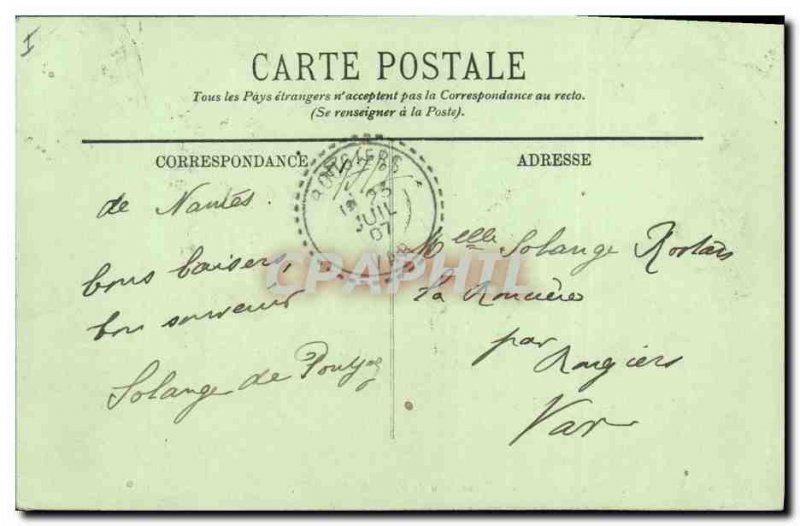 I
CARTE POSTALE
Tous les Pays étrangers n'acceptent pas la Correspondance au recto.
(Se renseigner à la Poste).
CORRESPONDANCE
ADRESSE
ROUGIERS
23
JUIL
07
VAR
CPAPHIL
de Nantes.
bons baisers,
bon souvenir
Solange de
Melle Solange Rostan
la
par Rougiers
Var